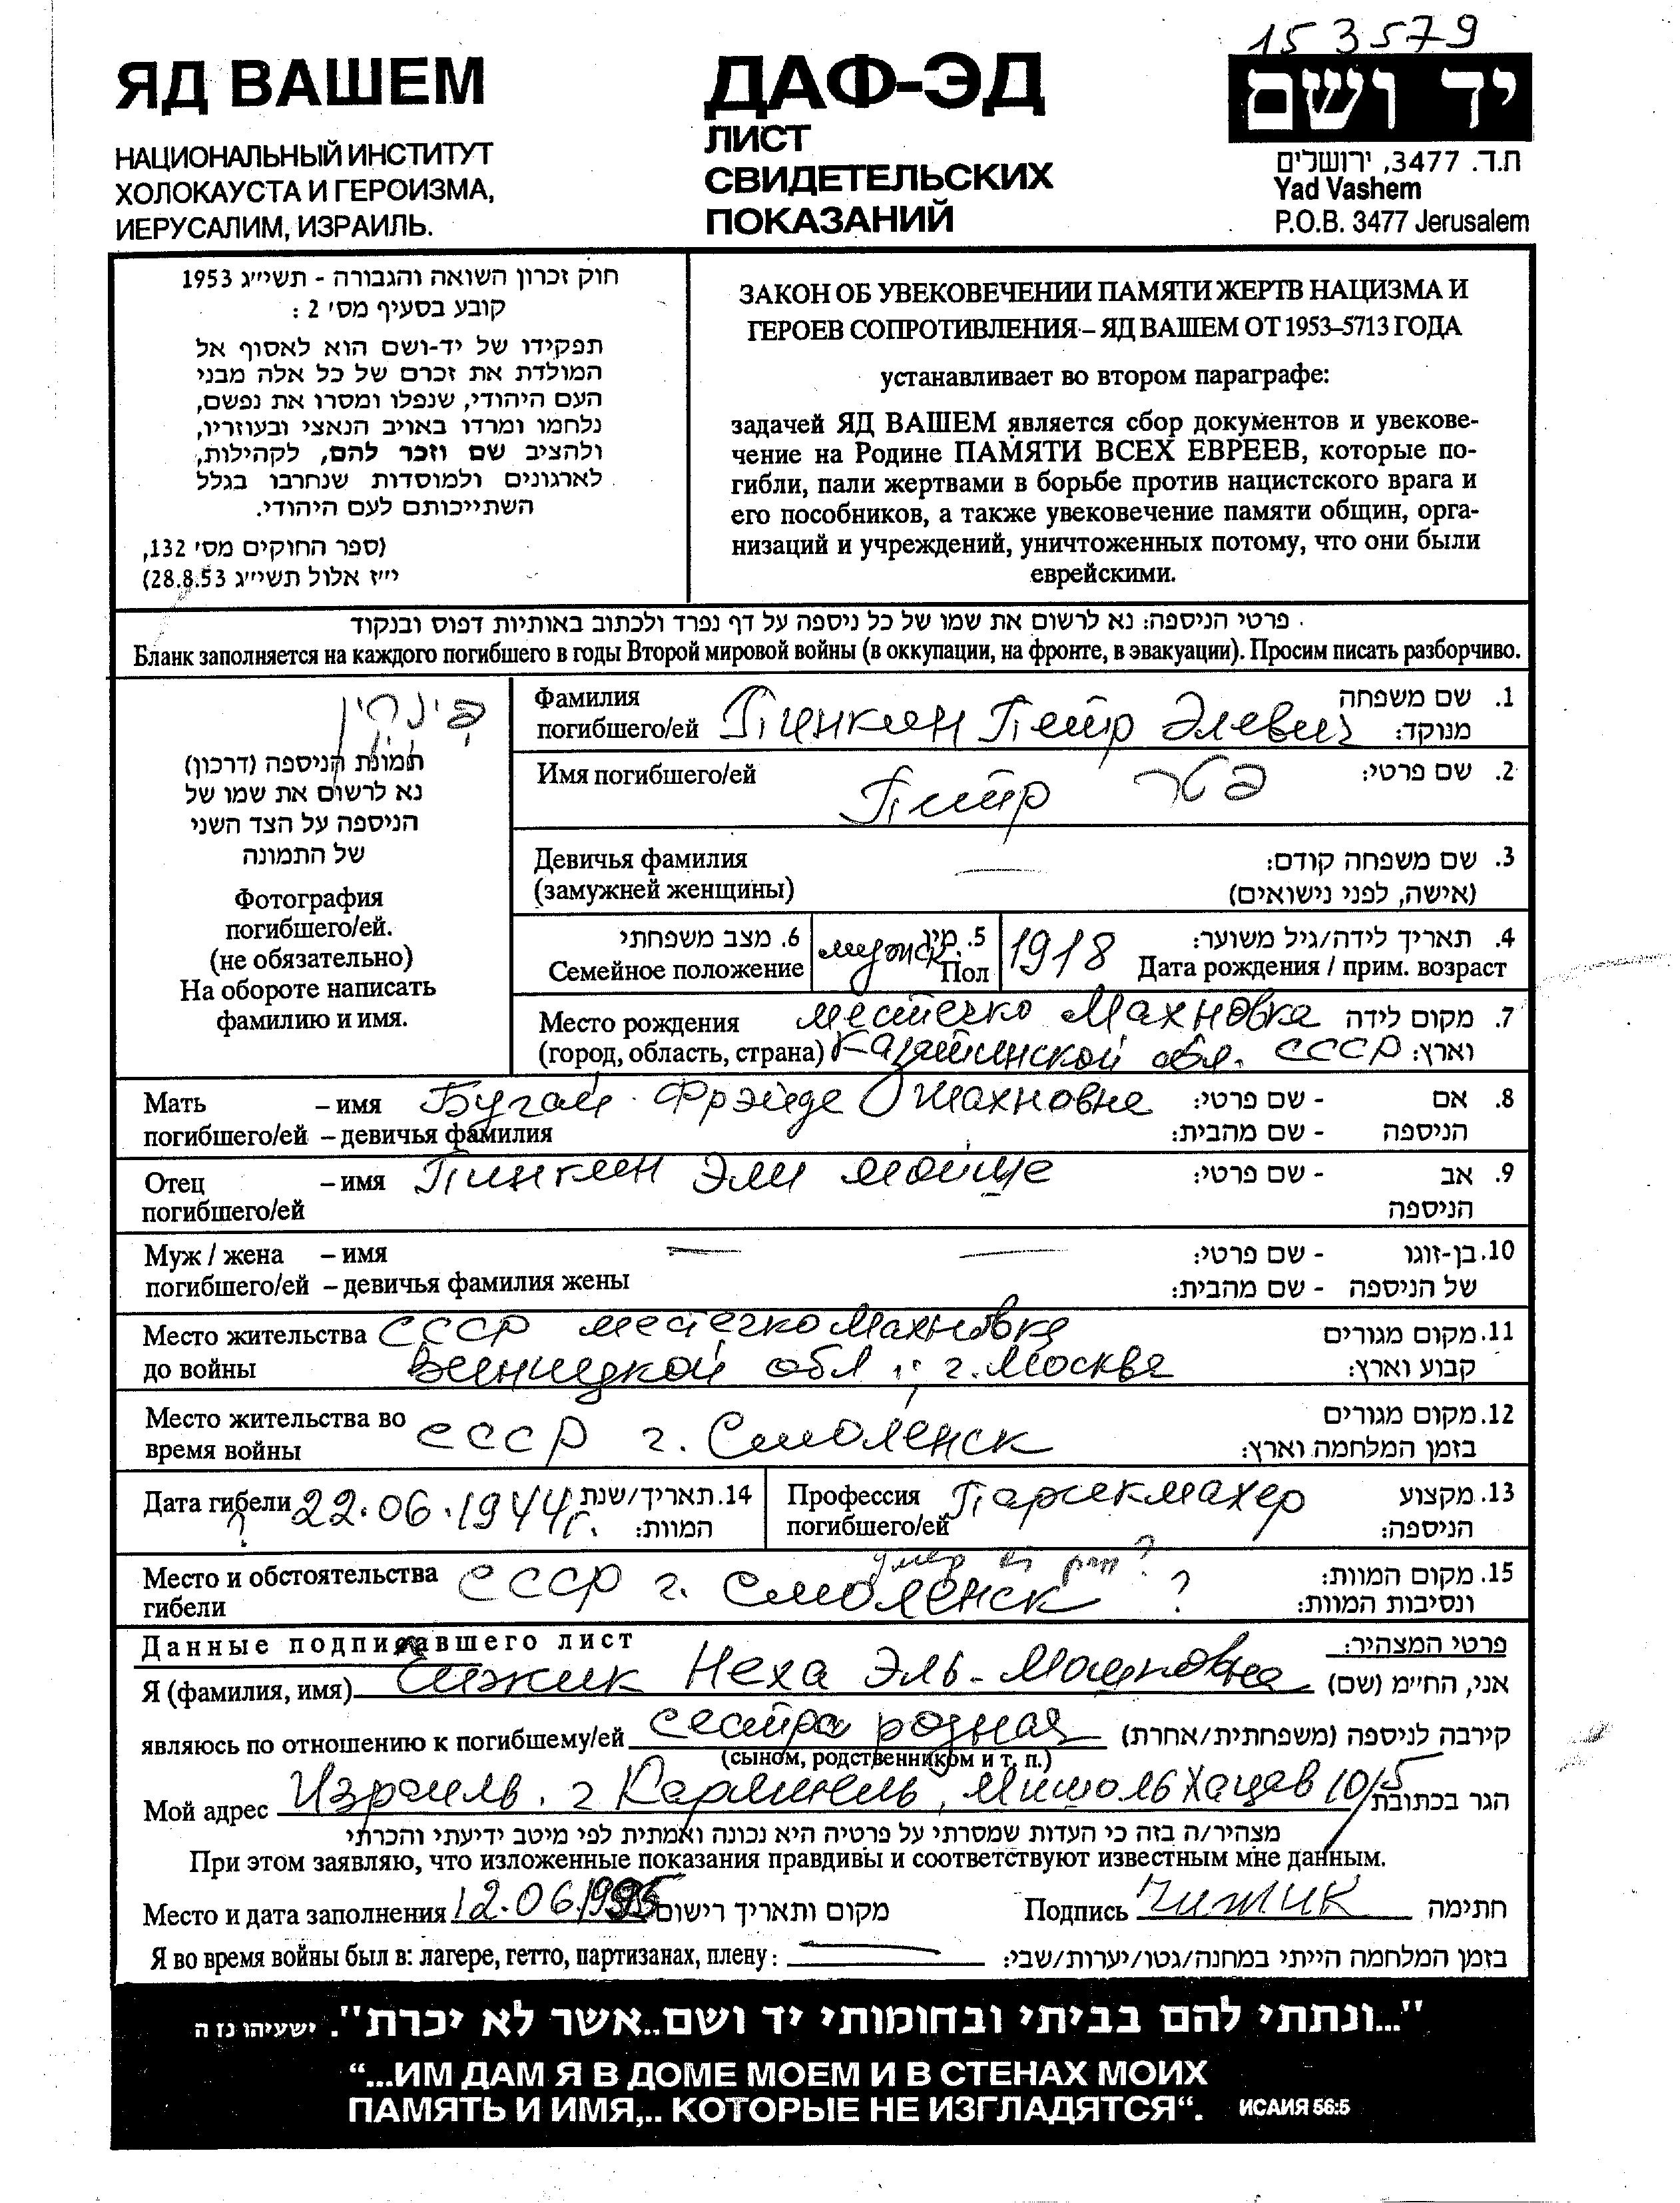 153579
ЯД ВАШЕМ
НАЦИОНАЛЬНЫЙ ИНСТИТУТ
ХОЛОКАУСТА И ГЕРОИЗМА,
ИЕРУСАЛИМ, ИЗРАИЛЬ.
ДАФ-ЭД
ЛИСТ
СВИДЕТЕЛЬСКИХ
ПОКАЗАНИЙ
יד ושם
ת.ד. 3477, ירושלים
Yad Vashem
P.O.B. 3477 Jerusalem
חוק זכרון השואה והגבורה - תשי״ג 1953
קובע בסעיף מס׳ 2 :
תפקידו של יד-ושם הוא לאסוף אל
המולדת את זכרם של כל אלה מבני
העם היהודי, שנפלו ומסרו את נפשם,
נלחמו ומרדו באויב הנאצי ובעוזריו,
ולהציב שם וזכר להם, לקהילות,
לארגונים ולמוסדות שנחרבו בגלל
השתייכותם לעם היהודי.
(ספר החוקים מס׳ 132,
י״ז אלול תשי״ג 28.8.53)
ЗАКОН ОБ УВЕКОВЕЧЕНИИ ПАМЯТИ ЖЕРТВ НАЦИЗМА И
ГЕРОЕВ СОПРОТИВЛЕНИЯ – ЯД ВАШЕМ ОТ 1953–5713 ГОДА
устанавливает во втором параграфе:
задачей ЯД ВАШЕМ является сбор документов и увекове-
чение на Родине ПАМЯТИ ВСЕХ ЕВРЕЕВ, которые по-
гибли, пали жертвами в борьбе против нацистского врага и
его пособников, а также увековечение памяти общин, орга-
низаций и учреждений, уничтоженных потому, что они были
еврейскими.
פרטי הניספה: נא לרשום את שמו של כל ניספה על דף נפרד ולכתוב באותיות דפוס ובנקוד
Бланк заполняется на каждого погибшего в годы Второй мировой войны (в оккупации, на фронте, в эвакуации). Просим писать разборчиво.
פינקין
תמונת הניספה (דרכון)
נא לרשום את שמו של
הניספה על הצד השני
של התמונה
Фотография
погибшего/ей.
(не обязательно)
На обороте написать
фамилию и имя.
Фамилия שם משפחה .1
погибшего/ей Пинкин Петр Элевич מנוקד:
Имя погибшего/ей Петр פטר שם פרטי: .2
Девичья фамилия — שם משפחה קודם: .3
(замужней женщины) (אישה, לפני נישואים)
6. מצב משפחתי 5. מין 1918 תאריך לידה/גיל משוער: .4
Семейное положение мужск. Пол Дата рождения / прим. возраст
Место рождения местечко Махновка מקום לידה .7
(город, область, страна) Казатинской обл. СССР וארץ:
Мать – имя Бугай Фрэйде Шахновна - שם פרטי: אם .8
погибшего/ей – девичья фамилия - שם מהבית: הניספה
Отец – имя Пинкин Эли Мойше - שם פרטי: אב .9
погибшего/ей הניספה
Муж / жена – имя — — - שם פרטי: בן-זוגו .10
погибшего/ей – девичья фамилия жены - שם מהבית: של הניספה
Место жительства СССР местечко Махновка מקום מגורים .11
до войны Винницкой обл., г. Москва קבוע וארץ:
Место жительства во מקום מגורים .12
время войны СССР г. Смоленск בזמן המלחמה וארץ:
Дата гибели 22.06.1944 г. 14. תאריך/שנת
? המוות:
Профессия Парикмахер מקצוע .13
погибшего/ей הניספה:
умер от ран?
Место и обстоятельства СССР г. Смоленск ? מקום המוות: .15
гибели ונסיבות המוות:
Данные подписавшего лист פרטי המצהיר:
Я (фамилия, имя) Чижик Неха Эль-Мошковна אני, החיימ (שם)
являюсь по отношению к погибшему/ей сестра родная קירבה לניספה (משפחתית/אחרת)
(сыном, родственником и т. п.)
Мой адрес Израиль. г Кармиель, Мишоль Хацав 10/5 הגר בכתובת
מצהיר/ה בזה כי העדות שמסרתי על פרטיה היא נכונה ואמתית לפי מיטב ידיעתי והכרתי
При этом заявляю, что изложенные показания правдивы и соответствуют известным мне данным.
Место и дата заполнения 12.06.1995 מקום ותאריך רישום Подпись Чижик חתימה
Я во время войны был в: лагере, гетто, партизанах, плену: — בזמן המלחמה הייתי במחנה/גטו/יערות/שבי:
"...ונתתי להם בביתי ובחומותי יד ושם..אשר לא יכרת". ישעיהו נז ה
“...ИМ ДАМ Я В ДОМЕ МОЕМ И В СТЕНАХ МОИХ
ПАМЯТЬ И ИМЯ,.. КОТОРЫЕ НЕ ИЗГЛАДЯТСЯ“. ИСАИЯ 56:5